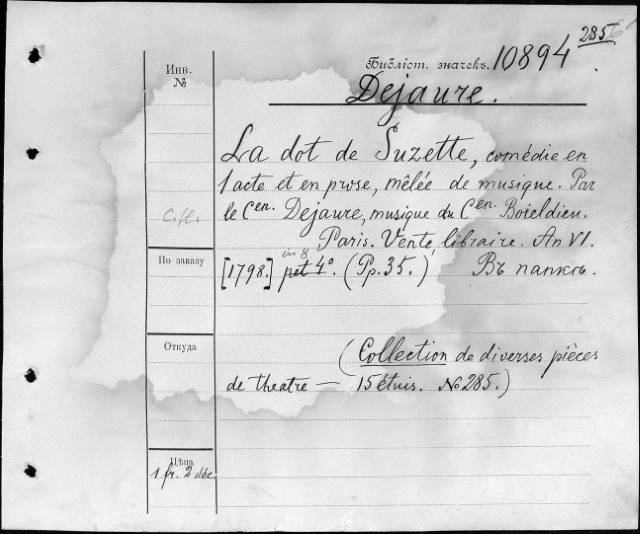 285
Библіот. значекъ. 10894
Инв.
№
Dejaure.
La dot de Suzette, comédie en
1 acte et en prose, mêlée de musique. Par
le Cen. Dejaure, musique du Cen. Boieldieu.
Paris. Vente, libraire. An VI.
in 8
[1798.] pet 4°. (Pp. 35.) Въ папкѣ.
По заказу
Откуда
(Collection de diverses pièces
de theatre — 15 étuis. No 285.)
Цѣна
1 fr. 2 déc.